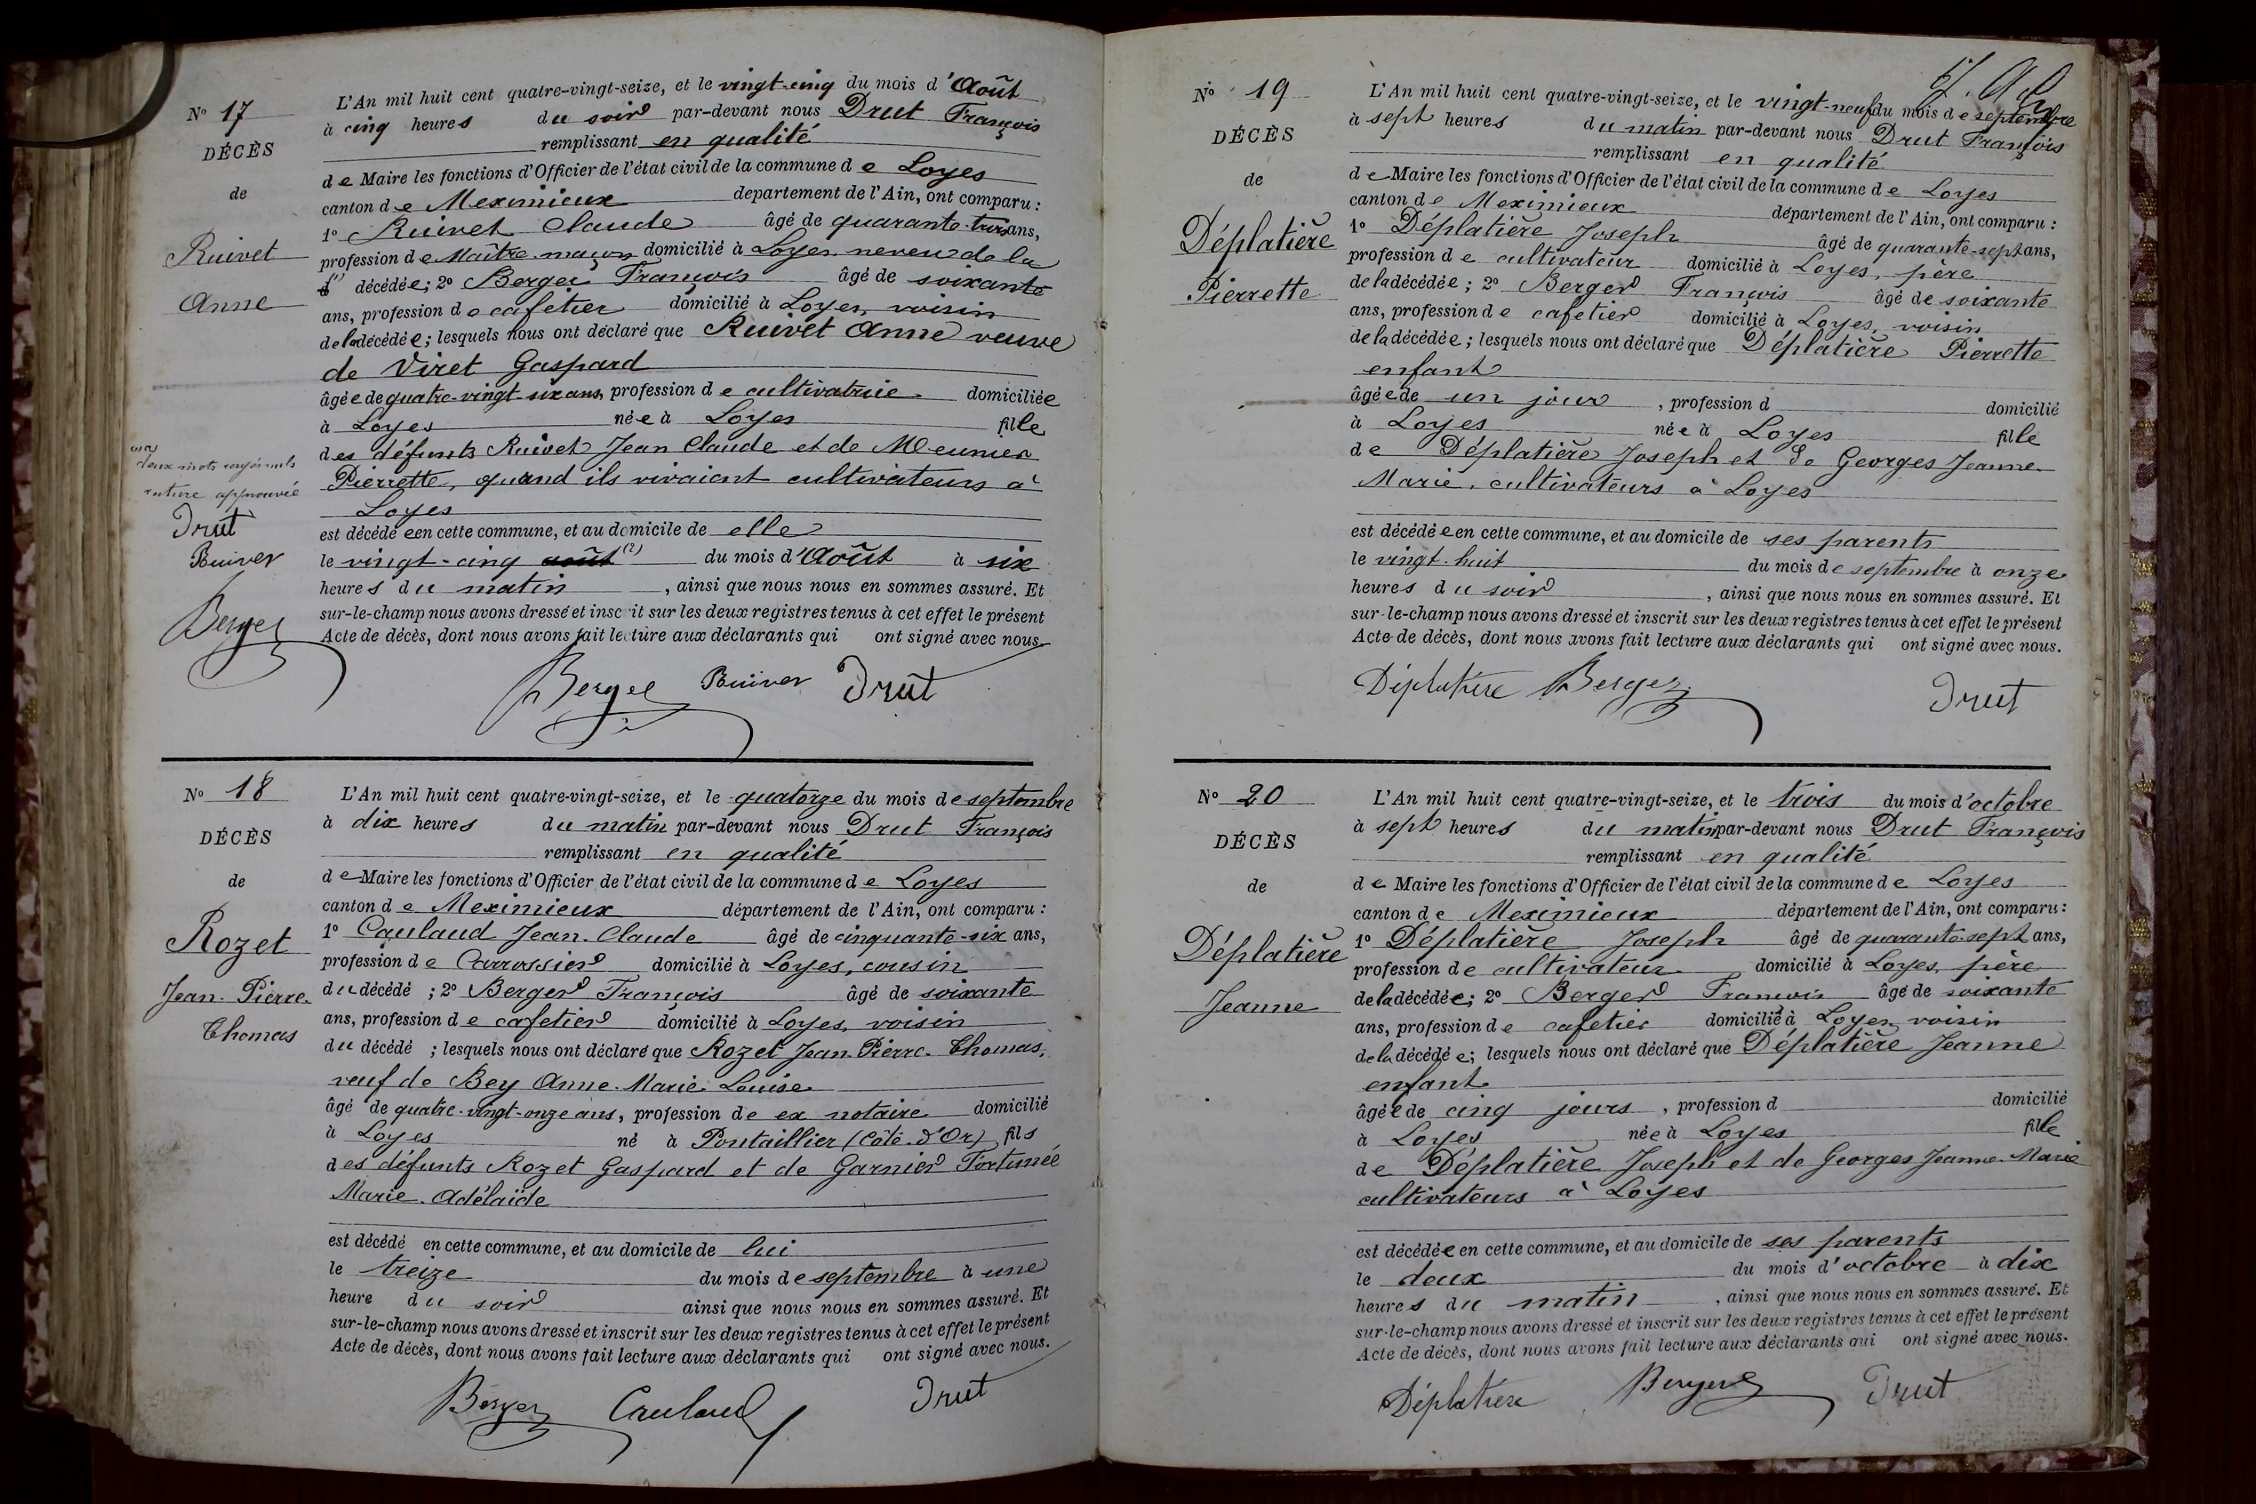 N° 17
DÉCÈS
de
Ruivet
Anne
L'An mil huit cent quatre-vingt-seize, et le vingt-cinq du mois d'Août
à cinq heures du soir par-devant nous Drut François
remplissant en qualité
de Maire les fonctions d'Officier de l'état civil de la commune de Loyes
canton de Meximieux département de l'Ain, ont comparu :
1° Ruivet Claude âgé de quarante-trois ans,
profession de Maître maçon domicilié à Loyes neveu de la
décédée ; 2° Berger François âgé de soixante
ans, profession de cafetier domicilié à Loyes, voisin
de la décédée ; lesquels nous ont déclaré que Ruivet Anne veuve
de Viret Gaspard
âgée de quatre-vingt-six ans, profession de cultivatrice domiciliée
à Loyes née à Loyes fille
des défunts Ruivet Jean Claude et de Meunier
Pierrette, quand ils vivaient cultivateurs à
Loyes
est décédée en cette commune, et au domicile de elle
le vingt-cinq août (2) du mois d'Août à six
heures du matin, ainsi que nous nous en sommes assuré. Et
sur-le-champ nous avons dressé et inscrit sur les deux registres tenus à cet effet le présent
Acte de décès, dont nous avons fait lecture aux déclarants qui ont signé avec nous.
deux mots
rature approuvée
Drut
Ruivet
Berger
Berger Ruivet Drut
N° 18
DÉCÈS
de
Rozet
Jean-Pierre-
Thomas
L'An mil huit cent quatre-vingt-seize, et le quatorze du mois de septembre
à dix heures du matin par-devant nous Drut François
remplissant en qualité
de Maire les fonctions d'Officier de l'état civil de la commune de Loyes
canton de Meximieux département de l'Ain, ont comparu :
1° Caulaud Jean-Claude âgé de cinquante-six ans,
profession de Carrossier domicilié à Loyes, cousin
du décédé ; 2° Berger François âgé de soixante
ans, profession de cafetier domicilié à Loyes, voisin
du décédé ; lesquels nous ont déclaré que Rozet Jean-Pierre-Thomas,
veuf de Bey Anne-Marie Louise
âgé de quatre-vingt-onze ans, profession de ex notaire domicilié
à Loyes né à Pontaillier (Côte-d'Or) fils
des défunts Rozet Gaspard et de Garnier Fortunée
Marie-Adélaïde
est décédé en cette commune, et au domicile de lui
le treize du mois de septembre à une
heure du soir ainsi que nous nous en sommes assuré. Et
sur-le-champ nous avons dressé et inscrit sur les deux registres tenus à cet effet le présent
Acte de décès, dont nous avons fait lecture aux déclarants qui ont signé avec nous.
Berger Caulaud Drut
N° 19
DÉCÈS
de
Déplatière
Pierrette
L'An mil huit cent quatre-vingt-seize, et le vingt-neuf du mois de septembre
à sept heures du matin par-devant nous Drut François
remplissant en qualité
de Maire les fonctions d'Officier de l'état civil de la commune de Loyes
canton de Meximieux département de l'Ain, ont comparu :
1° Déplatière Joseph âgé de quarante-sept ans,
profession de cultivateur domicilié à Loyes, père
de la décédée ; 2° Berger François âgé de soixante
ans, profession de cafetier domicilié à Loyes, voisin
de la décédée ; lesquels nous ont déclaré que Déplatière Pierrette
enfant
âgée de un jour, profession d domicilié
à Loyes née à Loyes fille
de Déplatière Joseph et de Georges Jeanne-
Marie, cultivateurs à Loyes
est décédée en cette commune, et au domicile de ses parents
le vingt-huit du mois de septembre à onze
heures du soir, ainsi que nous nous en sommes assuré. Et
sur-le-champ nous avons dressé et inscrit sur les deux registres tenus à cet effet le présent
Acte de décès, dont nous avons fait lecture aux déclarants qui ont signé avec nous.
Déplatière Berger Drut
N° 20
DÉCÈS
de
Déplatière
Jeanne
L'An mil huit cent quatre-vingt-seize, et le trois du mois d'octobre
à sept heures du matin par-devant nous Drut François
remplissant en qualité
de Maire les fonctions d'Officier de l'état civil de la commune de Loyes
canton de Meximieux département de l'Ain, ont comparu :
1° Déplatière Joseph âgé de quarante-sept ans,
profession de cultivateur domicilié à Loyes, père
de la décédée ; 2° Berger François âgé de soixante
ans, profession de cafetier domicilié à Loyes voisin
de la décédée ; lesquels nous ont déclaré que Déplatière Jeanne
enfant
âgée de cinq jours, profession d domicilié
à Loyes née à Loyes fille
de Déplatière Joseph et de Georges Jeanne-Marie
cultivateurs à Loyes
est décédée en cette commune, et au domicile de ses parents
le deux du mois d'octobre à dix
heures du matin, ainsi que nous nous en sommes assuré. Et
sur-le-champ nous avons dressé et inscrit sur les deux registres tenus à cet effet le présent
Acte de décès, dont nous avons fait lecture aux déclarants qui ont signé avec nous.
Déplatière Berger Drut